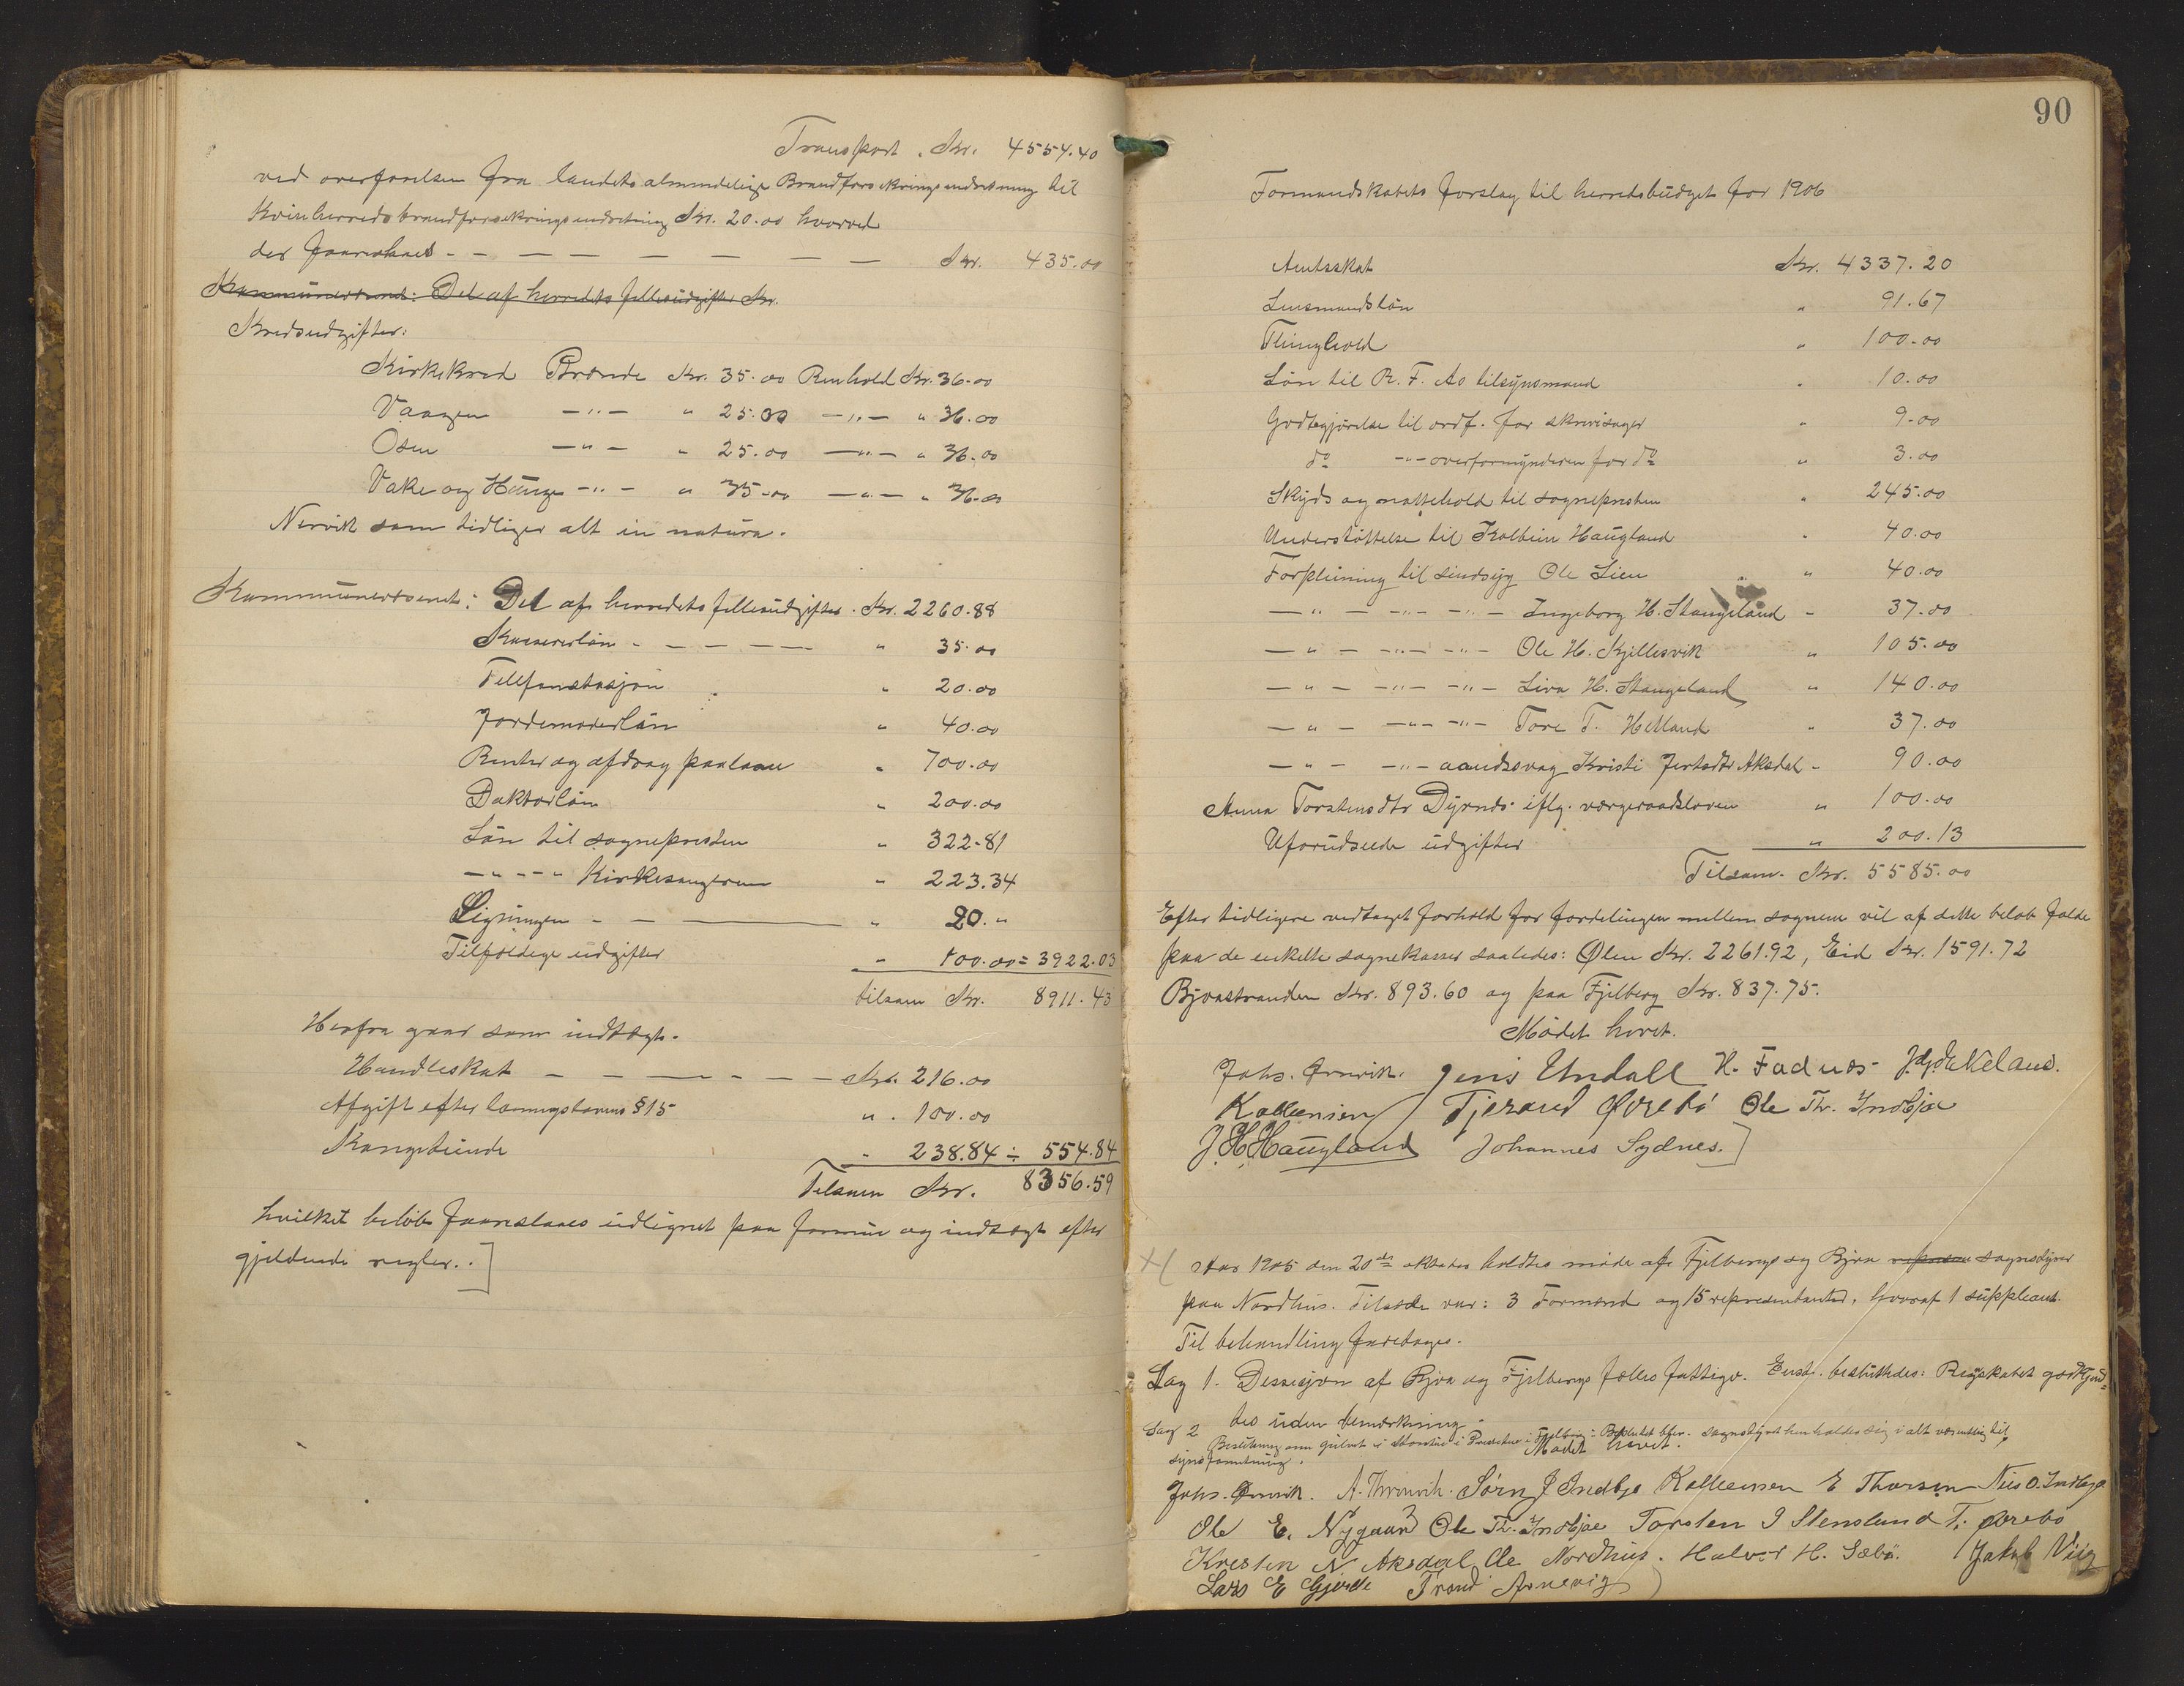 Transport. Kr. 4554.40
ved overførelsen fra landets almindelige Brandforsikringsindretning til
Kvinherreds brandforsekringsindretning Kr. 20.00 hvorved
der - - - - - - - - Kr. 435.00
Kommunevesenet: Del af herredets fellesudgifter Kr.
Kredsudgifter:
Kirkekred Brænde Kr. 35.00 Renhold Kr. 36.00
Vaagen -"- " 25.00 -"- " 36.00
Osen -"- " 25.00 -"- " 36.00
Vake og Hauge -"- " 35.00 -"- " 36.00
Nervik som tidliger alt in natura.
Kommunevesenet: Del af herredets fellesudgifter. Kr. 2260.88
Kassererløn - - - - - " 35.00
Telefonstasjon " 20.00
Jordemoderløn " 40.00
Renter og afdrag paa laan " 700.00
Doktorløn " 200.00
Løn til sognepresten " 322.81
-"- -" Kirkesangeren " 223.34
Ligningen - - - " 20."
Tilfeldige udgifter " 100.00 = 3922.03
tilsam Kr. 8911.43
Herfra gaar som indtægt.
Handleskat - - - - - - Kr. 216.00
Afgift efter lovens § 15 " 100.00
Kongetiende " 238.84 ÷ 554.84
Tilsam Kr. 8356.59
hvilket beløb foreslaaes udlignet paa formue og indtægt efter
gjeldende regler..]
90
Formandskabets forslag til herredsbudget for 1906
Amtsskat Kr. 4337.20
Lensmandsløn " 91.67
Thinghold " 100.00
Løn til R. F. As tilsynsmand " 10.00
Godtgjørelse til ordf. for skrivesager " 9.00
do -"- overformynderen for do " 3.00
Skyds og nattehold til sognepresten " 245.00
Understøttelse til Kolbein Haugland " 40.00
Forpleining til sindsyg Ole Lien " 40.00
-"- -"- -"- Ingeborg H. Stangeland " 37.00
-"- -"- -"- Ole H. Kjellesvik " 105.00
-"- -"- -"- Siva H. Stangeland " 140.00
-"- -"- -"- Tore T. Helland " 37.00
-"- -"- aandssvag Kristi Aksdal " 90.00
Anna Torstensdtr Dyrnds iflg. vergeraadsloven " 100.00
Uforudseede udgifter " 200.13
Tilsam. Kr. 5585.00
Efter tidligere vedtaget forhold for fordelingen mellem sognene vil af dette beløb falde
paa de enkelte sognekasser saaledes: Ølen Kr. 2261.92, Eid Kr. 1591.72
Bjoastranden Kr. 893.60 og paa Fjelberg Kr. 837.75.
Mødet hævet.
Johs. Ørnevik. Jens Undall H. Fadnes
Kallevsen Tjerand Øvrebø Ole Th. Indbjo
J. H. Haugland Johannes Sydnes.]
Aar 1905 den 20de oktober holdtes møde af Fjelbergs og Bjoa sognestyrer
paa Nordhus. Tilstede var: 3 Formænd og 15 representanter, hvoraf 1 suppleant.
Til behandling foretages.
Sag 1. Desisjon af Bjoa og Fjelbergs fælles fattigv. Enst. besluttedes: Regskabet godkjend-
tes uden bemerkning.
Sag 2 Beslutning om gulvet i i Fjelberg: Besluttet blev. Sognestyret henholder sig i alt væsentlig til
synsforretning. Mødet hævet.
Johs. Ørnevik. A. Søren J Indbjo Kallevsen E Thorsen Nils O. Indbjo
Ole E. Nygaard Ole Th. Indbjoe Torsten J Stensland T. Øvrebø
Kresten N Aksdal Ole Nordhus. Halvor H. Sæbø. Jakob Viig
Lars E Gjerde Trond Arnevig